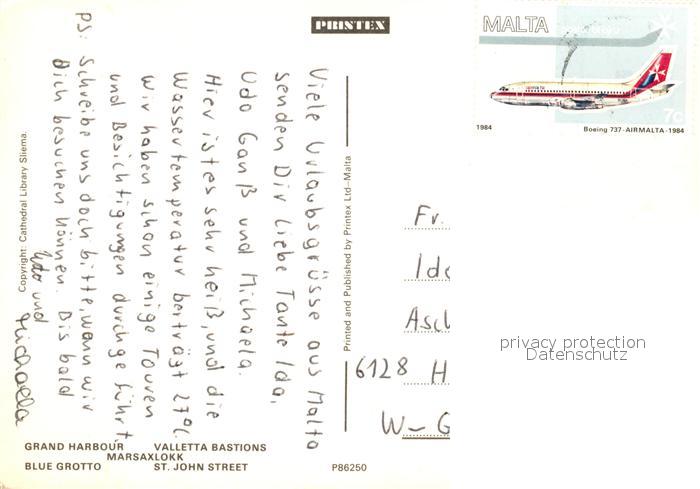 PRINTEX
MALTA
7c
1984
Boeing 737-AIRMALTA-1984
Viele Urlaubsgrüsse aus Malta
senden Dir liebe Tante Ida,
Udo Ganß und Michaela.
Hier ist es sehr heiß, und die
Wassertemperatur berträgt 27°C.
Wir haben schon einige Touren
und Besichtigungen durchgeführt.
PS: Schreibe uns doch bitte, wann wir
Dich besuchen können. Bis bald
Udo und
Michaela
Copyright: Cathedral Library Sliema.
Printed and Published by Printex Ltd–Malta
Fr.
Ida
6128 H
W–G
privacy protection
Datenschutz
GRAND HARBOUR VALLETTA BASTIONS
MARSAXLOKK
BLUE GROTTO ST. JOHN STREET
P86250